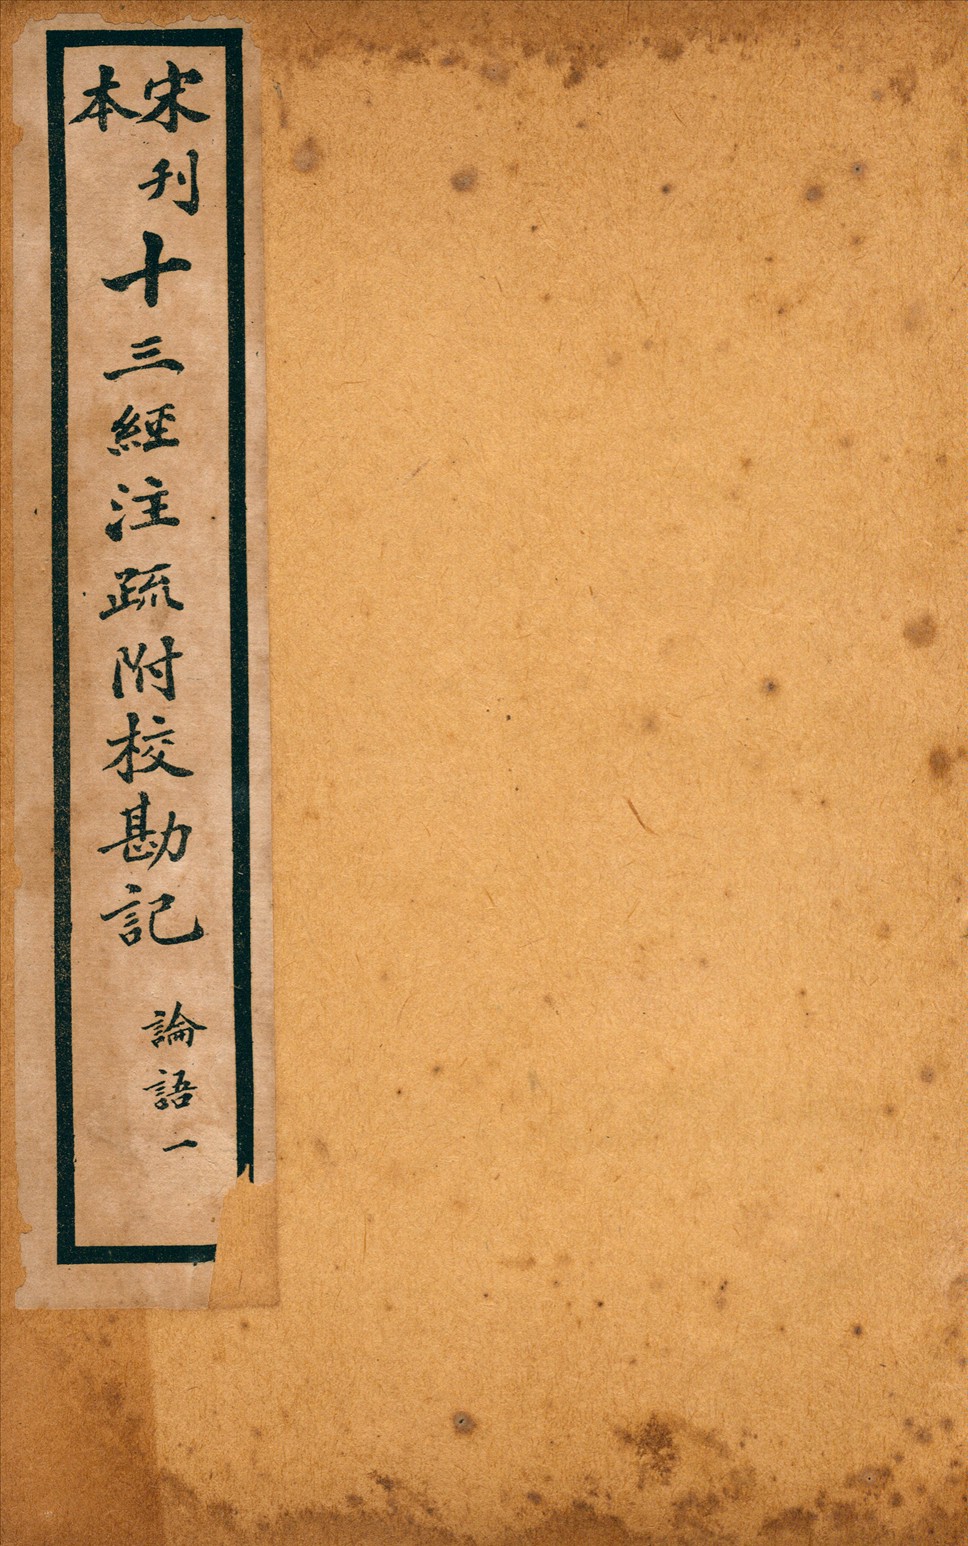 宋刊本
十三經注疏附校勘記
論語一